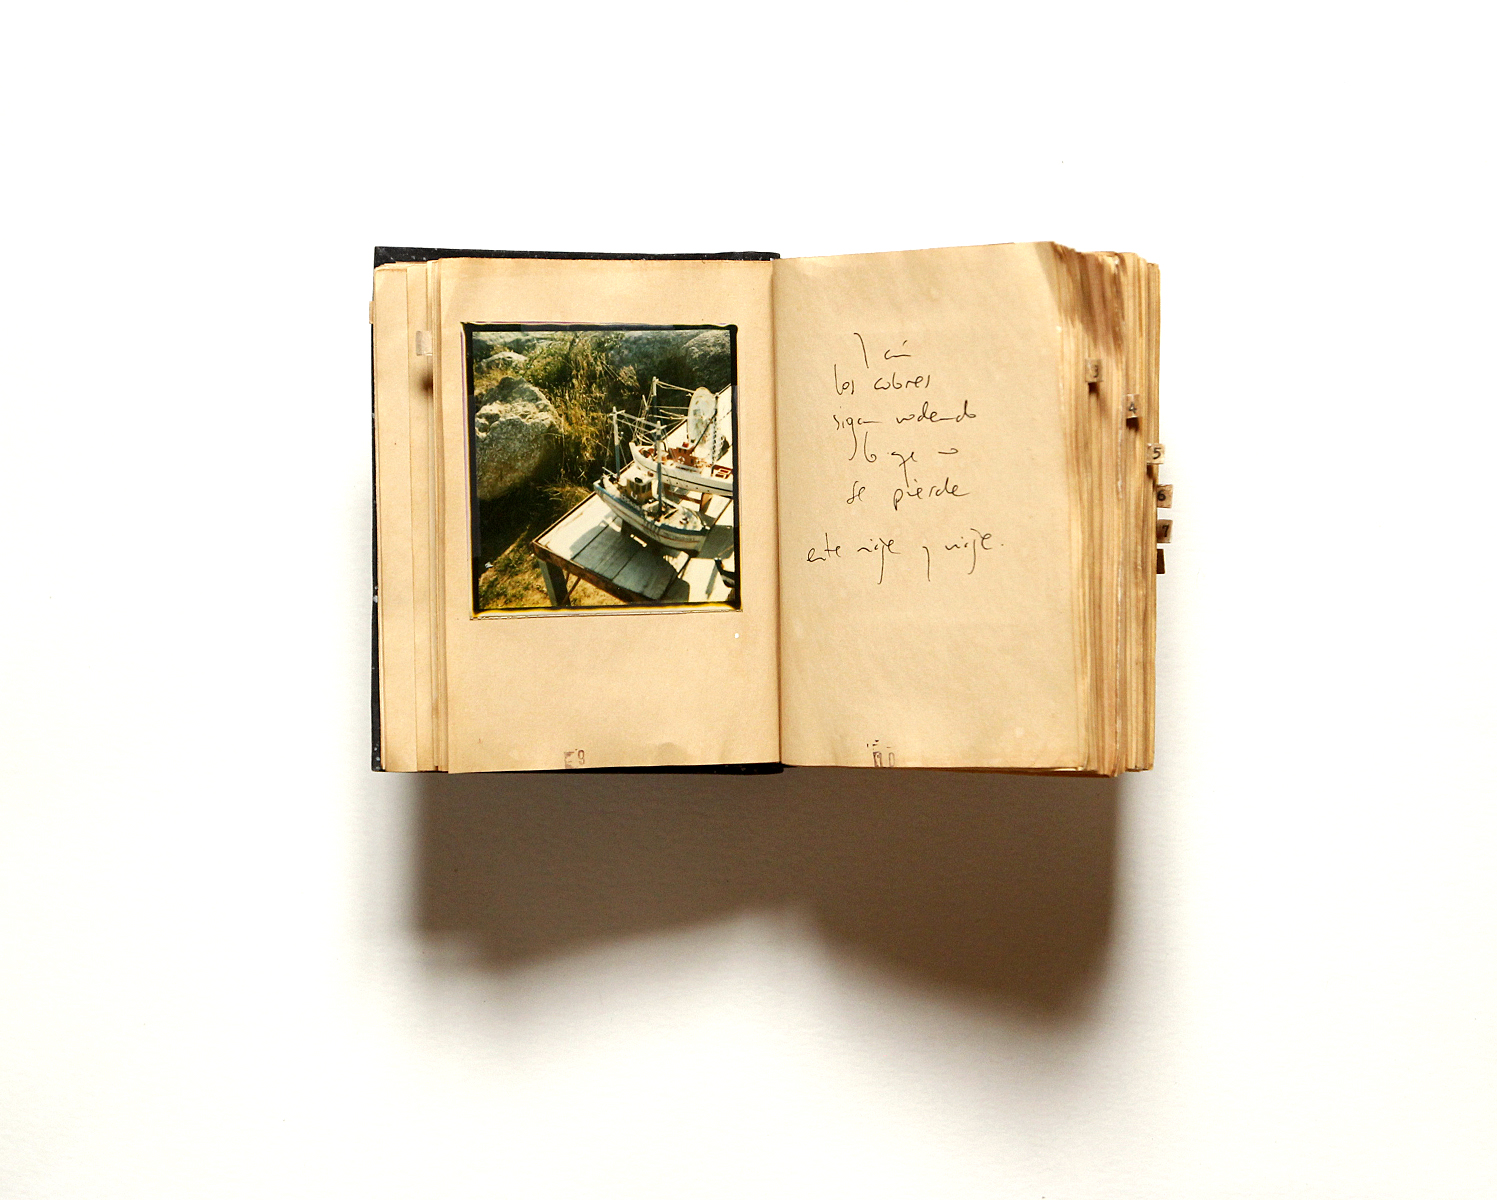 y aún
los cobres
sigan rodando
lo que no
se pierde
entre viaje y viaje.
3
4
5
6
7